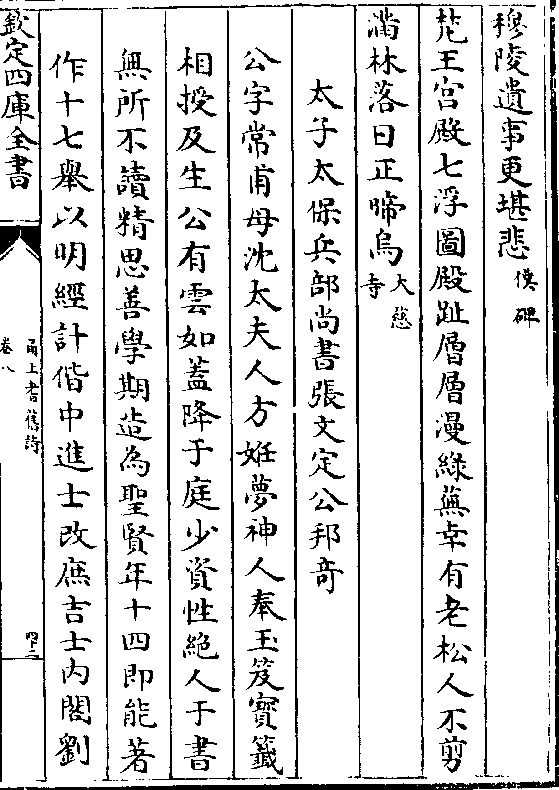 穆陵遺事更堪悲僕碑
梵王宮殿七浮圖殿趾層層漫綠蕪幸有老松人不剪
滿林落日正啼烏大慈寺
太子太保兵部尚書張文定公邦奇
公字常甫母沈太夫人方姙夢神人奉玉笈寶籤
相授及生公有雲如蓋降于庭少資性絕人于書
無所不讀精思善學期造為聖賢年十四即能著
作十七舉以明經計偕中進士改庶吉士内閣劉
欽定四庫全書
甬上耆舊詩
卷八
四十二